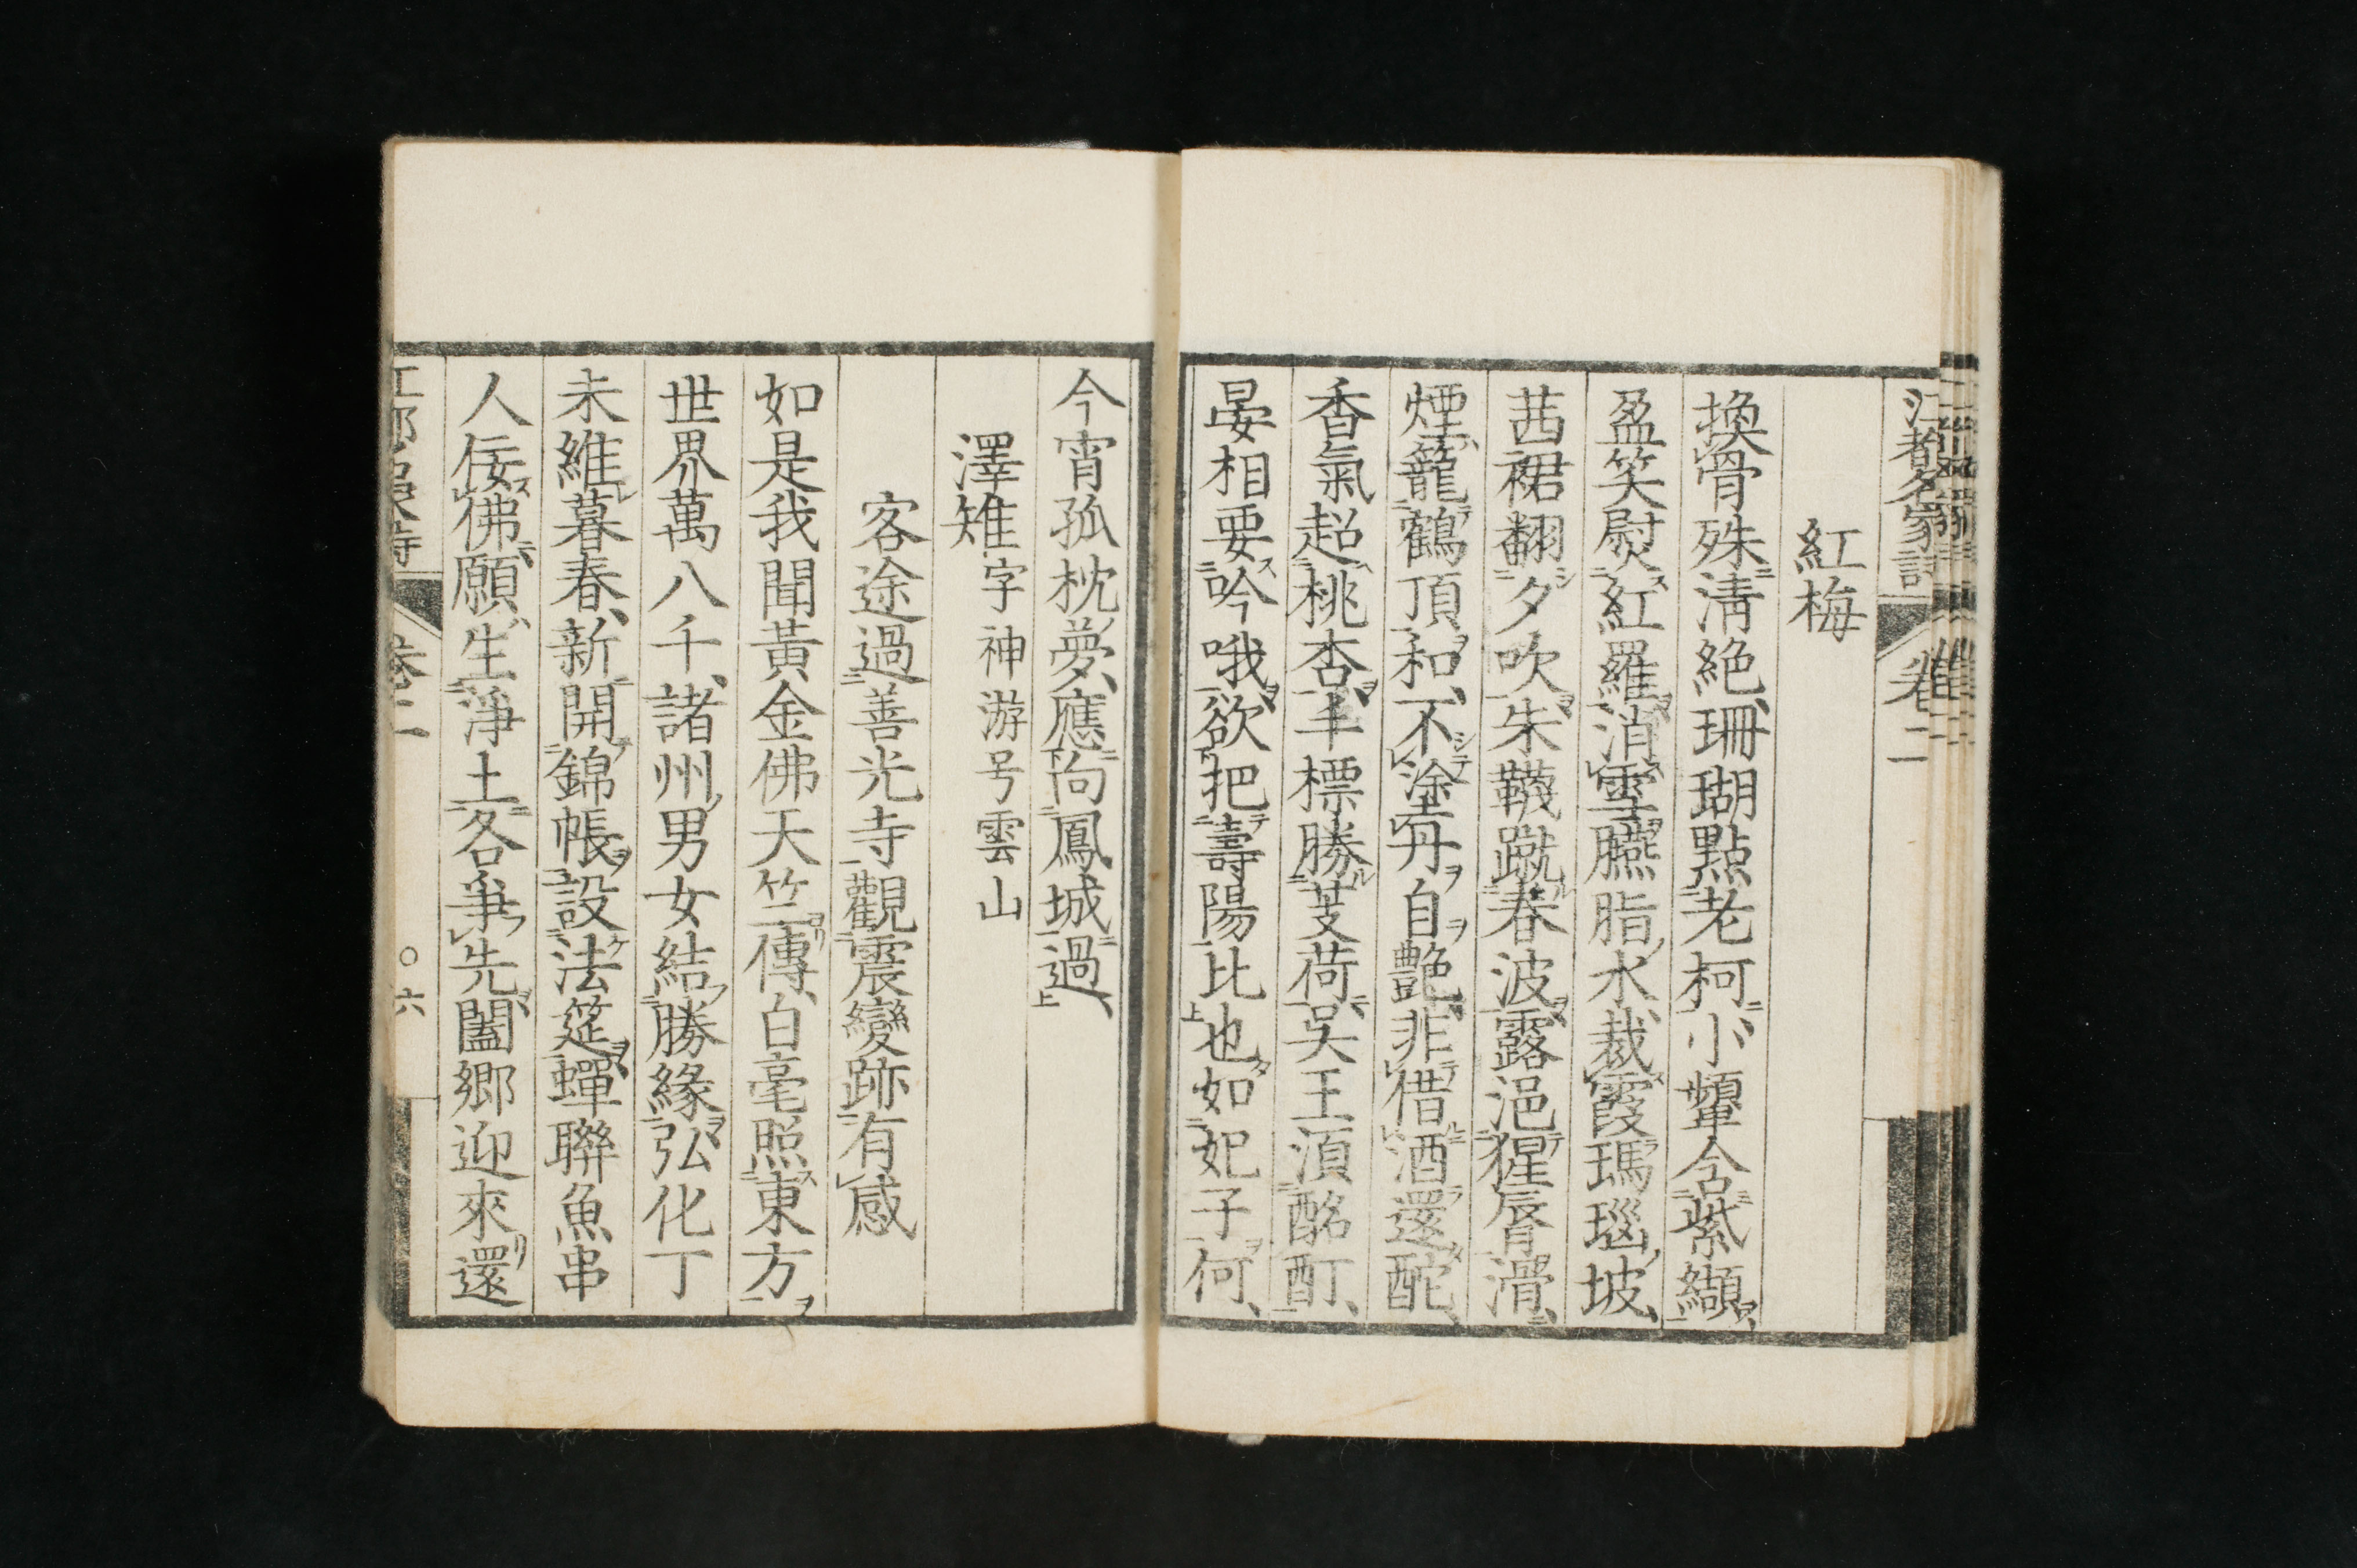 江都名家詩 卷二
紅梅
換骨殊淸絶珊瑚點老柯小顰含紫纈
盈笑熨紅羅消雪臙脂水裁霞瑪瑙坡
茜裙翻夕吹朱韈蹴春波露浥猩脣滑
煙籠鶴頂和不塗丹自艶非借酒還酡
香氣超桃杏丰標勝芰荷吳王須酩酊
晏相要吟哦欲把壽陽比也如妃子何
今宵孤枕夢應向鳳城過
澤雉字神游号雲山
客途過善光寺觀震變跡有感
如是我聞黃金佛天竺傳白毫照東方
世界萬八千諸州男女結勝緣弘化丁
未維暮春新開錦帳設法筵蟬聯魚串
人佞佛願生淨土各爭先闔鄉迎來還
卷二 〇六